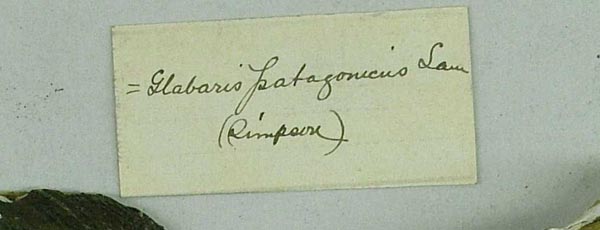 = Glabaris patagonicus Lam
(Simpson)